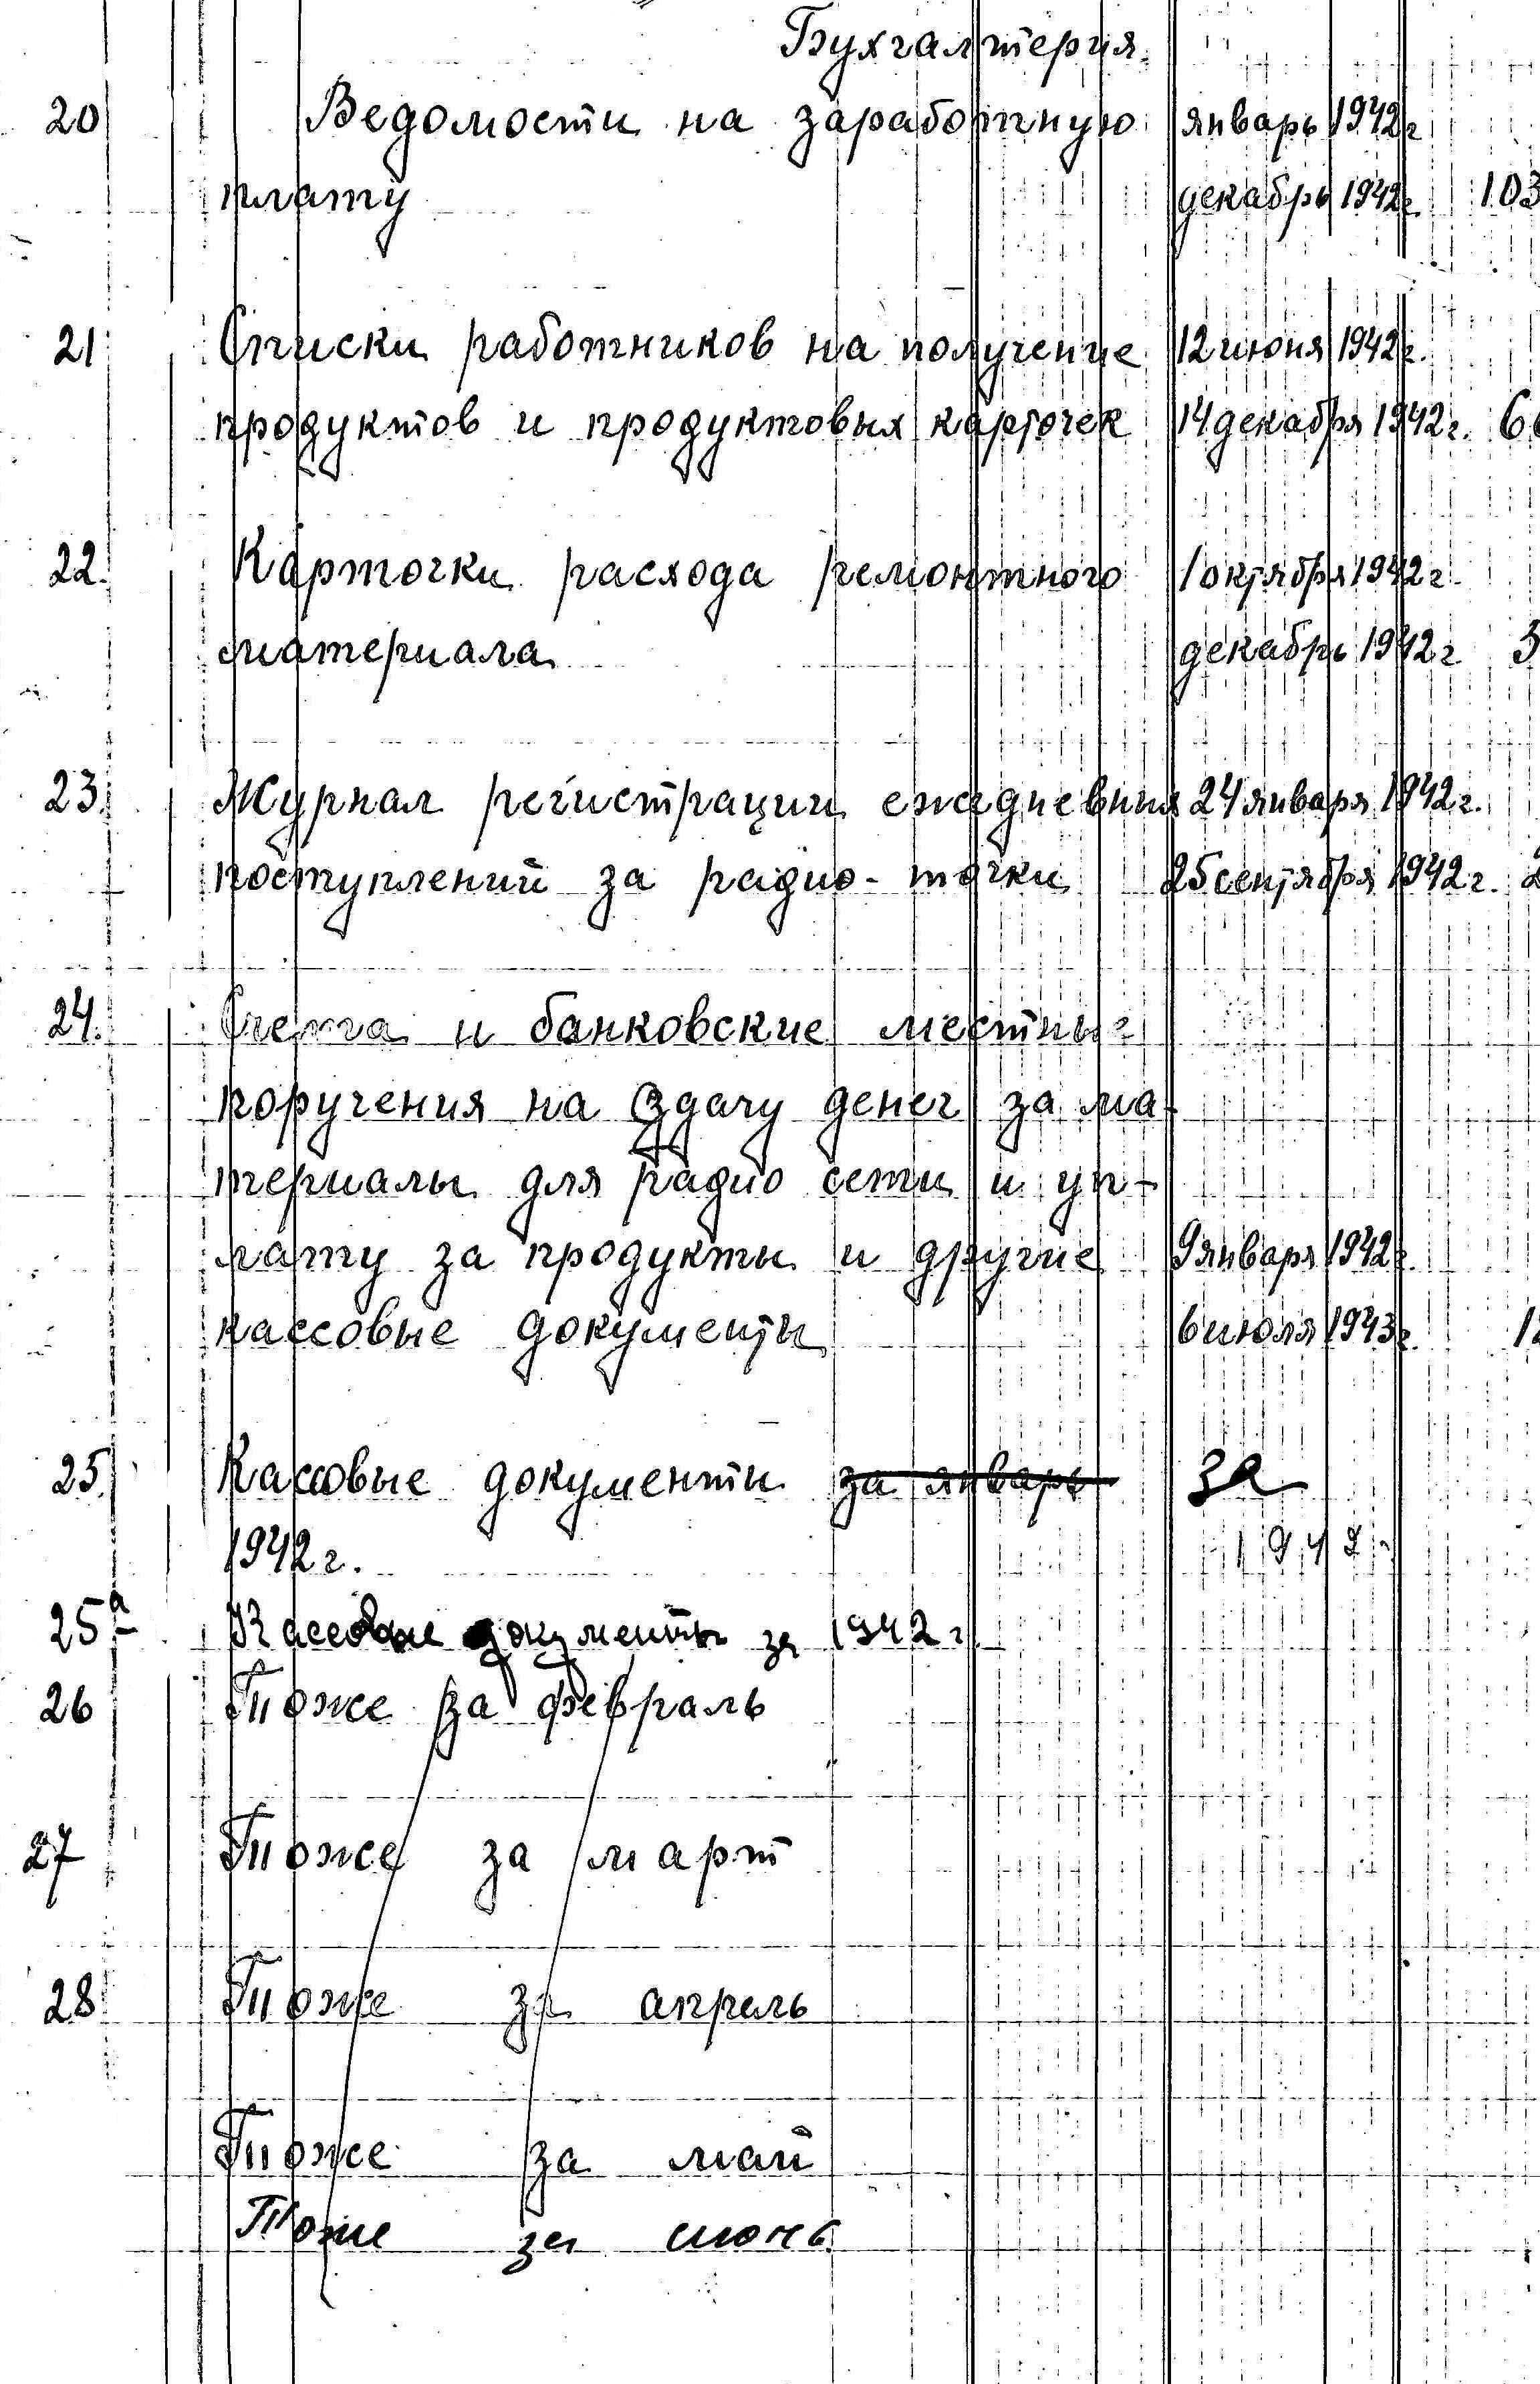 Бухгалтерия.
20 Ведомости на заработную январь 1942г
плату декабрь 1942г. 103
21 Списки работников на получение 12 июня 1942г.
продуктов и продуктовых карточек 14 декабря 1942г.
22. Карточки расхода ремонтного 1 октября 1942г.
материала декабрь 1942г.
23. Журнал регистрации ежедневных 24 января 1942г.
поступлений за радио-точки 25 сентября 1942г.
24. Счета и банковские местные
поручения на сдачу денег за ма-
териалы для радио сети и уп-
лату за продукты и другие 9 января 1942г.
кассовые документы 6 июля 1943г.
25. Кассовые документы за январь за
1942г. 1942г
25а Кассовые документы за 1942г.
26 Тоже за февраль
27 Тоже за март
28 Тоже за апрель
Тоже за май
Тоже за июнь